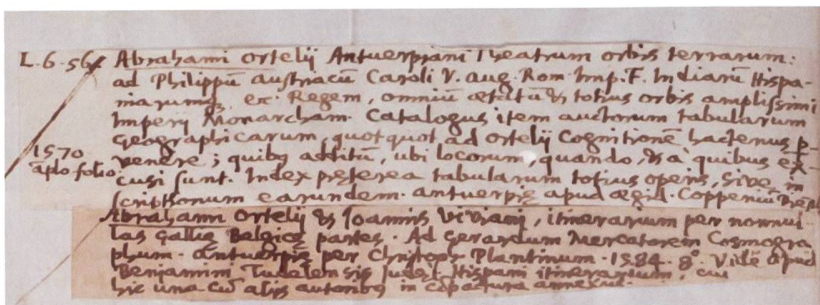 L.6.56 Abrahami Ortelij Antuerpiani Theatrum orbis terrarum:
ad Philippũ austriacũ Caroli V. aug. Rom. Imp. F. Indiarũ Hispa-
niarumq, etc. Regem, omniũ ætatũ & totius orbis amplissimi
Imperij Monarcham. Catalogus item auctorum tabularum
Geographicarum, quotquot ad ortelij Cognitionẽ hactenus p-
1570 venere; quibq additũ, ubi locorum, quando, & a quibus ex-
folio cusi sunt. Index preterea tabularum totius operis, sive in
scriptionum earundem. antuerpię apud ægid. Coppeniũ
Abrahami Ortelij & Ioannis Viviani, itinerarium per nonnul-
las Gallię Belgicę partes. Ad Gerardum Mercatorem Cosmogra
phum. Antuerpię per Christoph. Plantinum. 1584. 8° Vide apud
Beniamini Tudelensis Judei Hispani itinerarium, cui
hic una cũ alijs autoribq in copertura annexus.